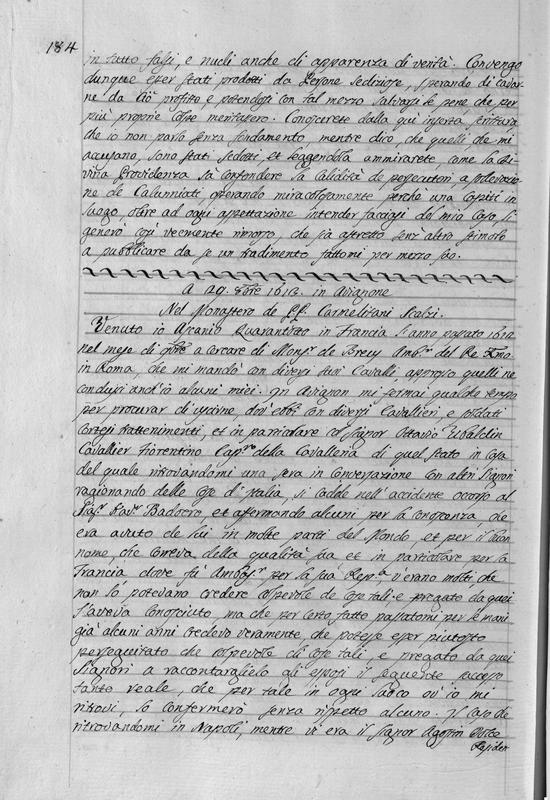 184
in tutto falsi, e nudi anche di apparenza di verità. Convengo
dunque esser stati prodotti da Persone sediziose, sperando di cavar-
ne da ciò profitto e potendosi con tal mezzo salvarsi le pene che per
più proprie colpe meritassero. Conoscerete dalla qui inserta scrittura
che io non parlo senza fondamento, mentre dico, che quelli che mi
accusano, sono stati sedotti, et leggendola ammirarete, come la Di-
vina Providenza sà confondere la calidità de persecutori, a sollevazio-
ne de Calunniati operando miracolosamente perchè una Copisti in
luogo, oltre ad ogni aspettazione intender facciasi del mio Caso, si
generò così veemente rimorso, che fà astretto senz'altro stimolo
a pubblicare da se un tradimento fattomi per mezzo suo.
a 29. 8bre 1612. in Avignone
Nel Monastero de PP. Carmelitani Scalzi.
Venuto io Ascanio Quarantotto in Francia l'anno passato 1612
nel mese di 9bre a cercare di Monsr. de Breuy Ambr. del Re
in Roma, che mi mandò con diversi suoi Cavalli, appresso quelli ne
condussi anch'io alcuni miei. In Avignon mi fermai qualche tempo
per procurar di uscirne, dov'ebbi con diversi Cavallieri e soldati
cortesi trattenimenti, et in particolare col signor Ottavio Ubaldin
Cavallier fiorentino Capno. della Cavalleria di quel stato in casa
del quale ritrovandomi una sera in Conversazione con altri Signori
ragionando delle cose d'Italia, si cadde nell'accidente occorso al
Sigr. Kavr. Badoero, et affermando alcuni, per la conoscenza, che
era avuto de lui in molte parti del Mondo, et per il buon
nome, che correva della qualità sua et in particolare per la
Francia, dove fù Ambasr. per la sua Repca. v'erano molti che
non lo potevano credere colpevole de cose tali. e pregato da quei
l'aveva conosciuto, ma che per certo fatto passatomi per le mani
già alcuni anni credevo veramente, che potesse esser piutosto
perseguitato che colpevole di cose tali, e pregato da quei
Signori a raccontarglielo gli esposi il seguente successo
tanto reale, che per tale in ogni loco ov'io mi
ritrovi, lo confermerò senza rispetto alcuno. Il caso è che
ritrovandomi in Napoli, mentre vi era il signor Agostin Dolce